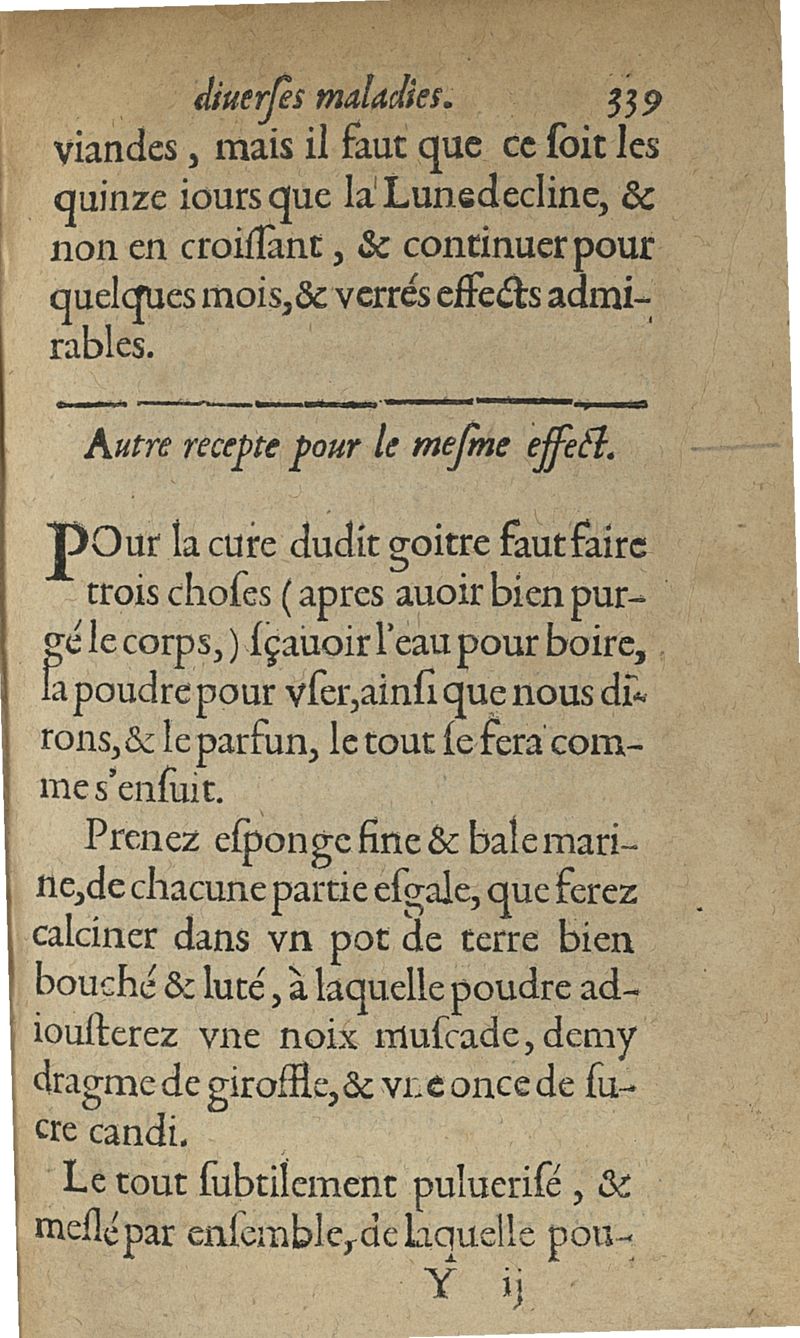 diuerſes maladies. 339
viandes, mais il faut que ce ſoit les
quinze iours que la Lune decline, &
non en croiſſant, & continuer pour
quelques mois, & verrés effects admi-
rables.
Autre recepte pour le meſme effect.
POur la cure dudit goitre faut faire
trois choſes (apres auoir bien pur-
gé le corps,) ſçauoir l'eau pour boire,
la poudre pour vſer, ainſi que nous di-
rons, & le parfun, le tout ſe fera com-
me s'enſuit.
Prenez eſponge fine & bale mari-
ne, de chacune partie eſgale, que ferez
calciner dans vn pot de terre bien
bouché & luté, à laquelle poudre ad-
iouſterez vne noix muſcade, demy
dragme de giroffle, & vne once de ſu-
cre candi.
Le tout ſubtilement pulueriſé, &
meſlé par enſemble, de laquelle pou-
Y ij